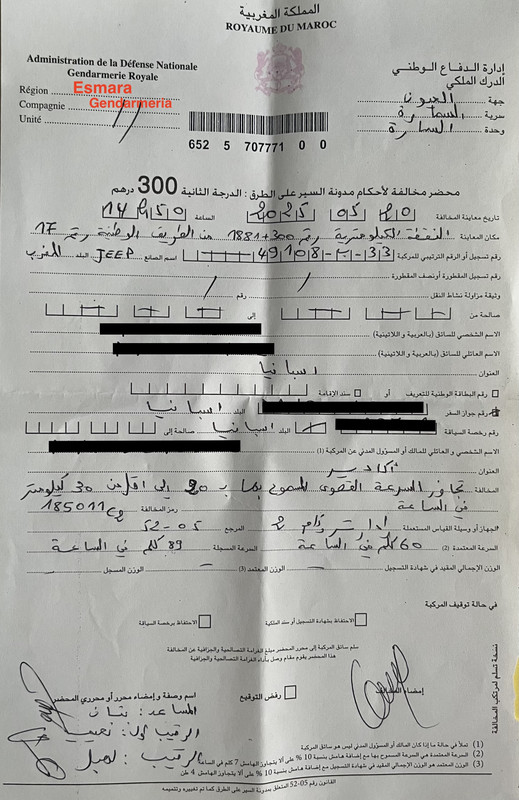 المملكة المغربية
ROYAUME DU MAROC
Administration de la Défense Nationale
Gendarmerie Royale
Région Esmara
Compagnie Gendarmeria
Unité
إدارة الدفاع الوطني
الدرك الملكي
جهة العيون
سرية السمارة
وحدة السمارة
652 5 707771 0 0
محضر مخالفة لأحكام مدونة السير على الطرق: الدرجة الثانية 300 درهم
تاريخ معاينة المخالفة 20 05 2025 الساعة 14 50
مكان المعاينة النقطة الكيلومترية رقم 1881+300 من الطريق الوطنية رقم
رقم تسجيل أو الرقم الترتيبي للمركبة 33 49108 اسم الصانع JEEP البلد المغرب
رقم تسجيل المقطورة أو نصف المقطورة
وثيقة مزاولة نشاط النقل رقم
صالحة من إلى
الاسم الشخصي للسائق (بالعربية و اللاتينية)
الاسم العائلي للسائق (بالعربية و اللاتينية)
العنوان اسبانيا
رقم البطاقة الوطنية للتعريف أو سند الإقامة
رقم جواز السفر البلد اسبانيا
رقم رخصة السياقة البلد اسبانيا صالحة إلى
الاسم الشخصي و العائلي للمالك أو المسؤول المدني عن المركبة (1)
العنوان أكادير
المخالفة تجاوز السرعة القصوى المسموح بها ب 20 إلى أقل من 30 كيلومتر
في الساعة
رمز المخالفة 185011
الجهاز أو وسيلة القياس المستعملة المرجع 52-05
السرعة المعتمدة (2) 60 كلم في الساعة السرعة المسجلة 89 كلم في الساعة
الوزن الإجمالي المقيد في شهادة التسجيل الوزن المعتمد (3) الوزن المسجل
في حالة توقيف المركبة
الاحتفاظ بشهادة التسجيل أو سند الملكية
الاحتفاظ برخصة السياقة
سلم سائق المركبة إلى محرر المحضر مبلغ الغرامة التصالحية والجزافية عن المخالفة
هذا المحضر يقوم مقام وصل بأداء الغرامة التصالحية والجزافية
إمضاء المخالف
رفض التوقيع
اسم وصفة و إمضاء محرر أو محرري المحضر
المساعد:
الرقيب أول:
الرقيب:
نسخة تسلم لمرتكب المخالفة
(1) تملأ في حالة ما إذا كان المالك أو المسؤول المدني ليس هو سائق المركبة
(2) السرعة المعتمدة هي السرعة المسموح بها مع إضافة هامش بنسبة 10 % على ألا يتجاوز الهامش 7 كلم في الساعة
(3) الوزن المعتمد هو الوزن الإجمالي المقيد في شهادة التسجيل مع إضافة هامش بنسبة 10 % على ألا يتجاوز الهامش 4 طن
القانون رقم 05-52 المتعلق بمدونة السير على الطرق كما تم تغييره وتتميمه